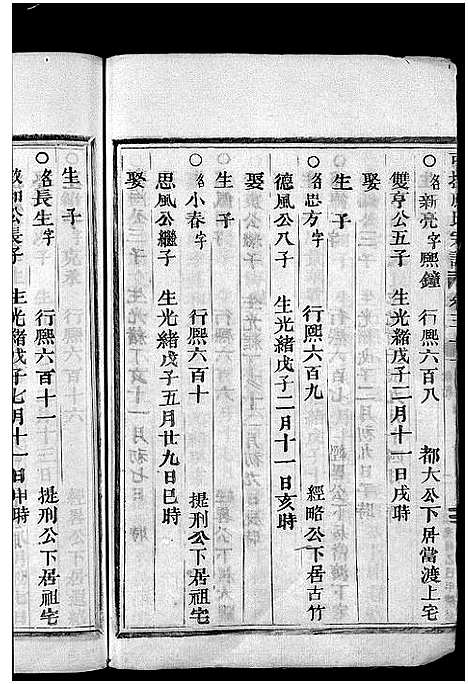 ○諱新亮字熙鐘　行熙六百八　都大公下居當渡上宅
雙亨公五子　生光緒戊子二月十一日戌時
娶
生子
○諱思方字　行熙六百九　經略公下居古竹
德風公八子　生光緒戊子二月十一日亥時
娶
生子
○諱小春字　行熙六百十　提刑公下居祖宅
思風公繼子　生光緒戊子五月廿九日巳時
娶
生子
○諱長生字　行熙六百十一　提刑公下居祖宅
公長子　生光緒戊子七月十一日申時